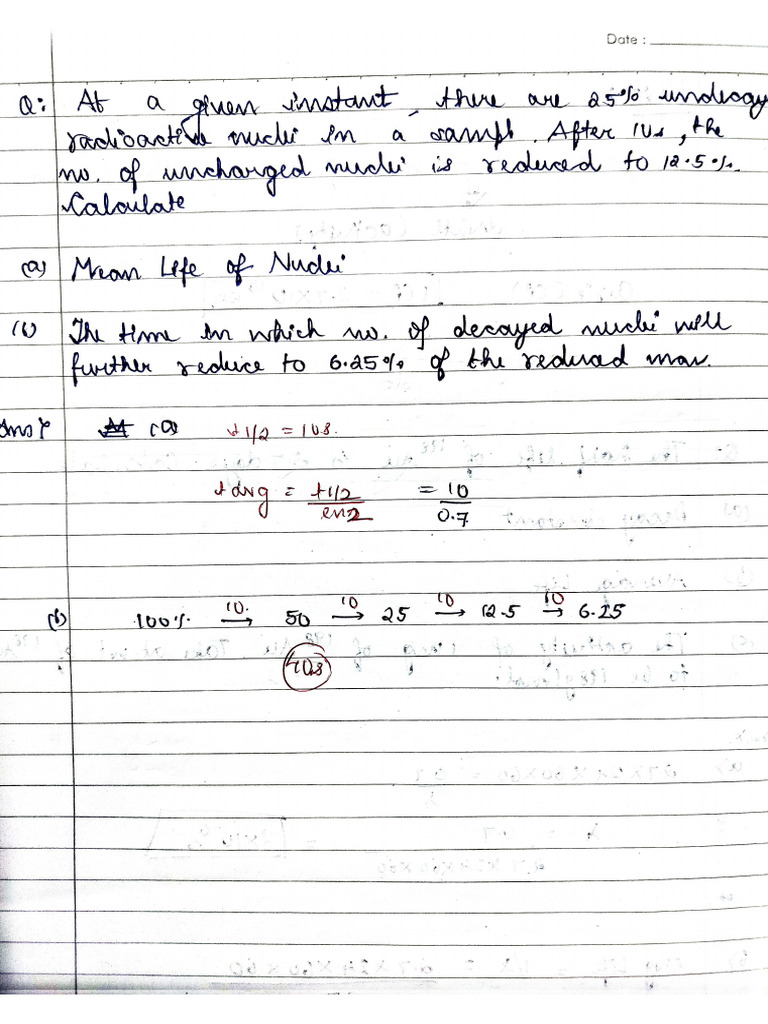 Date :
Q: At a given instant, there are 25% undecay
radioactive nuclei in a sampl. After 10s, the
no. of uncharged nuclei is reduced to 12.5%.
Calculate
(a) Mean Life of Nuclei
(b) The time in which no. of decayed nuclei will
further reduce to 6.25% of the reduced
Ans: (a) t1/2 = 10s.
t avg = t1/2 / ln2 = 10 / 0.7
(b) 100% 10. → 50 10 → 25 10 → 12.5 10 → 6.25
40s